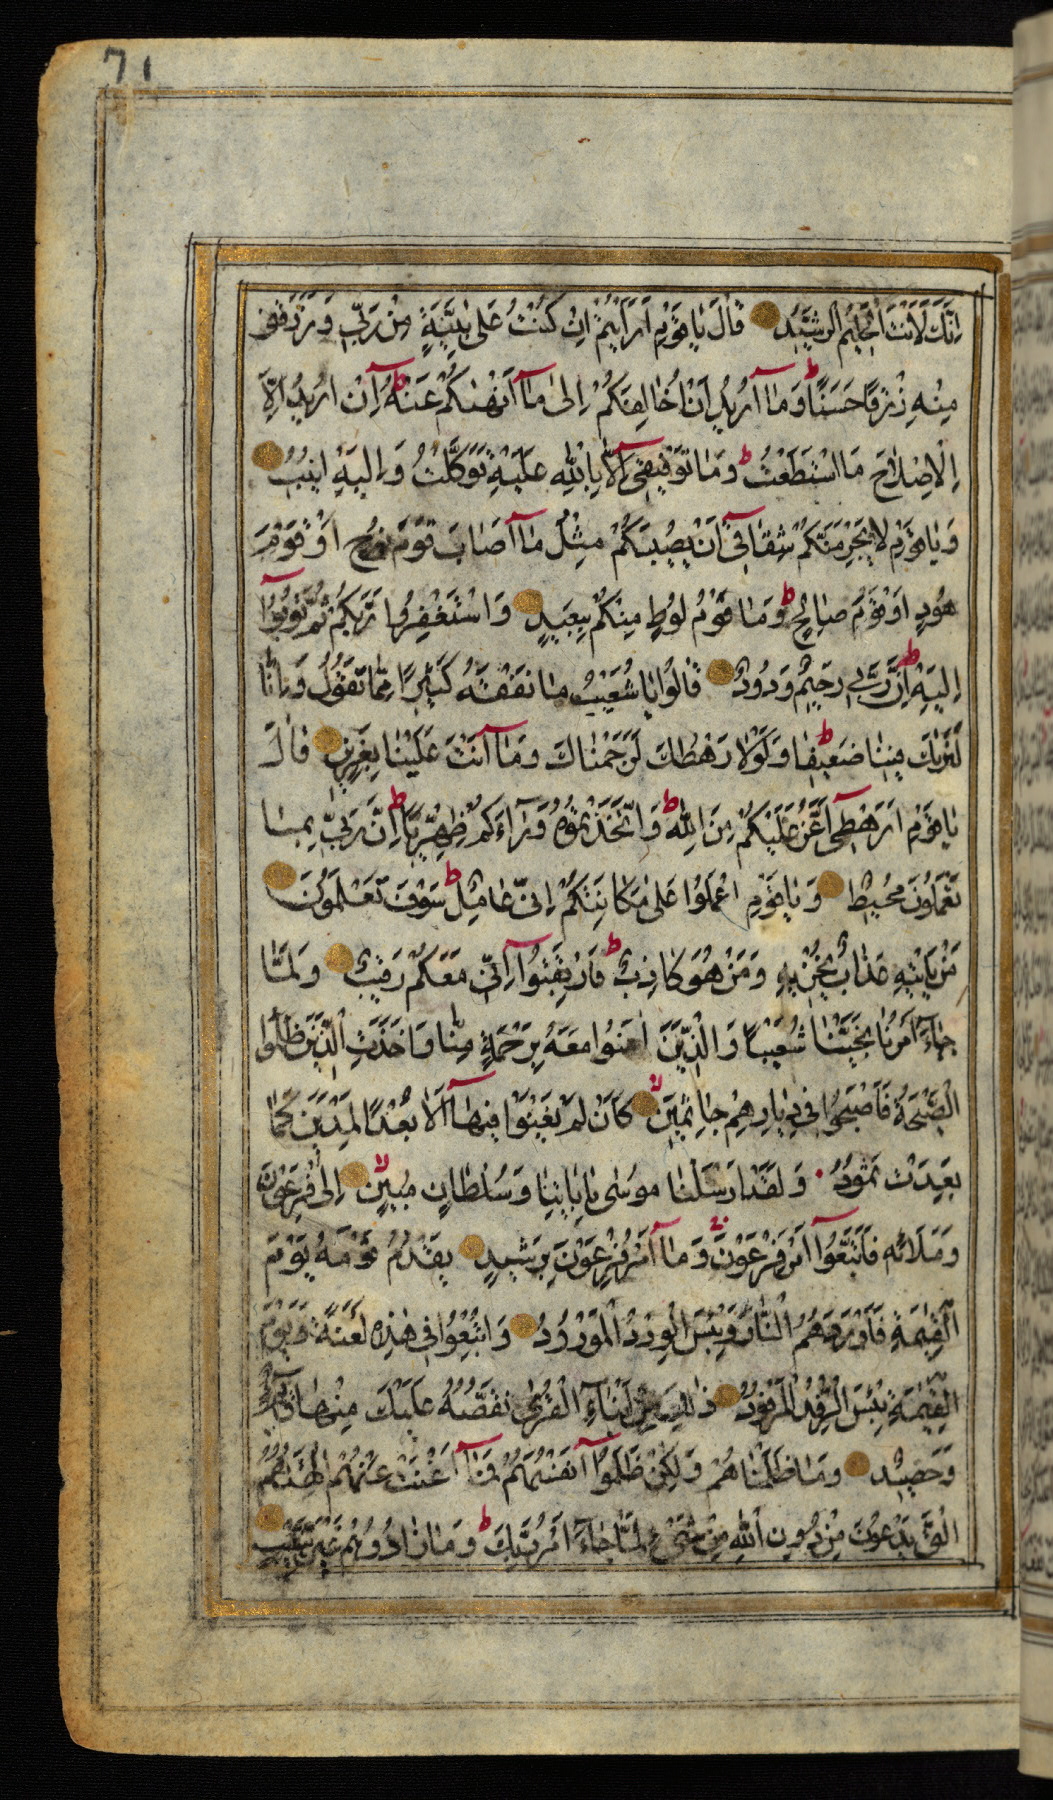 71
اِنَّكَ لَاَنْتَ الْحَلِيمُ الرَّشِيدُ قَالَ يَا قَوْمِ اَرَاَيْتُمْ اِنْ كُنْتُ عَلَى بَيِّنَةٍ مِنْ رَبِّي وَرَزَقَنِي
مِنْهُ رِزْقًا حَسَنًا ط وَمَا اُرِيدُ اَنْ اُخَالِفَكُمْ اِلَى مَا اَنْهٰيكُمْ عَنْهُ ط اِنْ اُرِيدُ اِلَّا
الْاِصْلَاحَ مَا اسْتَطَعْتُ ط وَمَا تَوْفِيقِي اِلَّا بِاللهِ عَلَيْهِ تَوَكَّلْتُ وَاِلَيْهِ اُنِيبُ
وَيَا قَوْمِ لَا يَجْرِمَنَّكُمْ شِقَاقِي اَنْ يُصِيبَكُمْ مِثْلُ مَا اَصَابَ قَوْمَ نُوحٍ اَوْ قَوْمَ
هُودٍ اَوْ قَوْمَ صَالِحٍ ط وَمَا قَوْمُ لُوطٍ مِنْكُمْ بِبَعِيدٍ وَاسْتَغْفِرُوا رَبَّكُمْ ثُمَّ تُوبُوا
اِلَيْهِ ط اِنَّ رَبِّي رَحِيمٌ وَدُودٌ قَالُوا يَا شُعَيْبُ مَا نَفْقَهُ كَثِيرًا مِمَّا تَقُولُ وَاِنَّا
لَنَرٰيكَ فِينَا ضَعِيفًا ط وَلَوْلَا رَهْطُكَ لَرَجَمْنَاكَ وَمَا اَنْتَ عَلَيْنَا بِعَزِيزٍ قَالَ
يَا قَوْمِ اَرَهْطِي اَعَزُّ عَلَيْكُمْ مِنَ اللهِ ط وَاتَّخَذْتُمُوهُ وَرَاءَكُمْ ظِهْرِيًّا ط اِنَّ رَبِّي بِمَا
تَعْمَلُونَ مُحِيطٌ وَيَا قَوْمِ اعْمَلُوا عَلَى مَكَانَتِكُمْ اِنِّي عَامِلٌ ط سَوْفَ تَعْلَمُونَ
مَنْ يَاْتِيهِ عَذَابٌ يُخْزِيهِ وَمَنْ هُوَ كَاذِبٌ ط فَارْتَقِبُوا اِنِّي مَعَكُمْ رَقِيبٌ وَلَمَّا
جَاءَ اَمْرُنَا نَجَّيْنَا شُعَيْبًا وَالَّذِينَ اٰمَنُوا مَعَهُ بِرَحْمَةٍ مِنَّا وَاَخَذَتِ الَّذِينَ ظَلَمُوا
الصَّيْحَةُ فَاَصْبَحُوا فِي دِيَارِهِمْ جَاثِمِينَ لا كَاَنْ لَمْ يَغْنَوْا فِيهَا اَلَا بُعْدًا لِمَدْيَنَ كَمَا
بَعِدَتْ ثَمُودُ وَلَقَدْ اَرْسَلْنَا مُوسٰى بِاٰيَاتِنَا وَسُلْطَانٍ مُبِينٍ لا اِلٰى فِرْعَوْنَ
وَمَلَائِهِ فَاتَّبَعُوا اَمْرَ فِرْعَوْنَ وَمَا اَمْرُ فِرْعَوْنَ بِرَشِيدٍ يَقْدُمُ قَوْمَهُ يَوْمَ
الْقِيٰمَةِ فَاَوْرَدَهُمُ النَّارَ وَبِئْسَ الْوِرْدُ الْمَوْرُودُ وَاُتْبِعُوا فِي هٰذِهِ لَعْنَةً وَيَوْمَ
الْقِيٰمَةِ بِئْسَ الرِّفْدُ الْمَرْفُودُ ذٰلِكَ مِنْ اَنْبَاءِ الْقُرٰى نَقُصُّهُ عَلَيْكَ مِنْهَا قَائِمٌ
وَحَصِيدٌ وَمَا ظَلَمْنَاهُمْ وَلٰكِنْ ظَلَمُوا اَنْفُسَهُمْ فَمَا اَغْنَتْ عَنْهُمْ اٰلِهَتُهُمُ
الَّتِي يَدْعُونَ مِنْ دُونِ اللهِ مِنْ شَيْءٍ لَمَّا جَاءَ اَمْرُ رَبِّكَ ط وَمَا زَادُوهُمْ غَيْرَ تَتْبِيبٍ